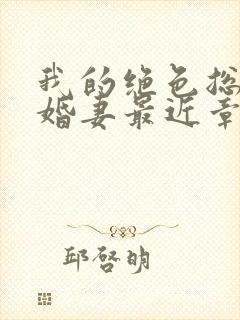 我的绝色总
婚妻最近章
邱启明